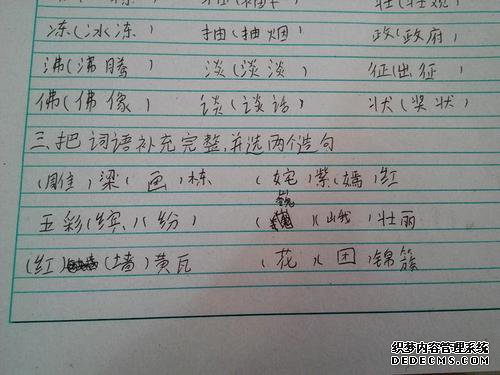 冻(冰冻) 抽(抽烟) 政(政府)
沸(沸腾) 淡(淡淡) 征(出征)
佛(佛像) 谈(谈话) 状(奖状)
三、把词语补充完整,并选两个造句
(雕)梁(画)栋 (姹)紫(嫣)红
五彩(缤)(纷) (巍)(峨)壮丽
(红)(墙)黄瓦 (花)(团)锦簇
织梦内容管理系统
DEDECMS.COM